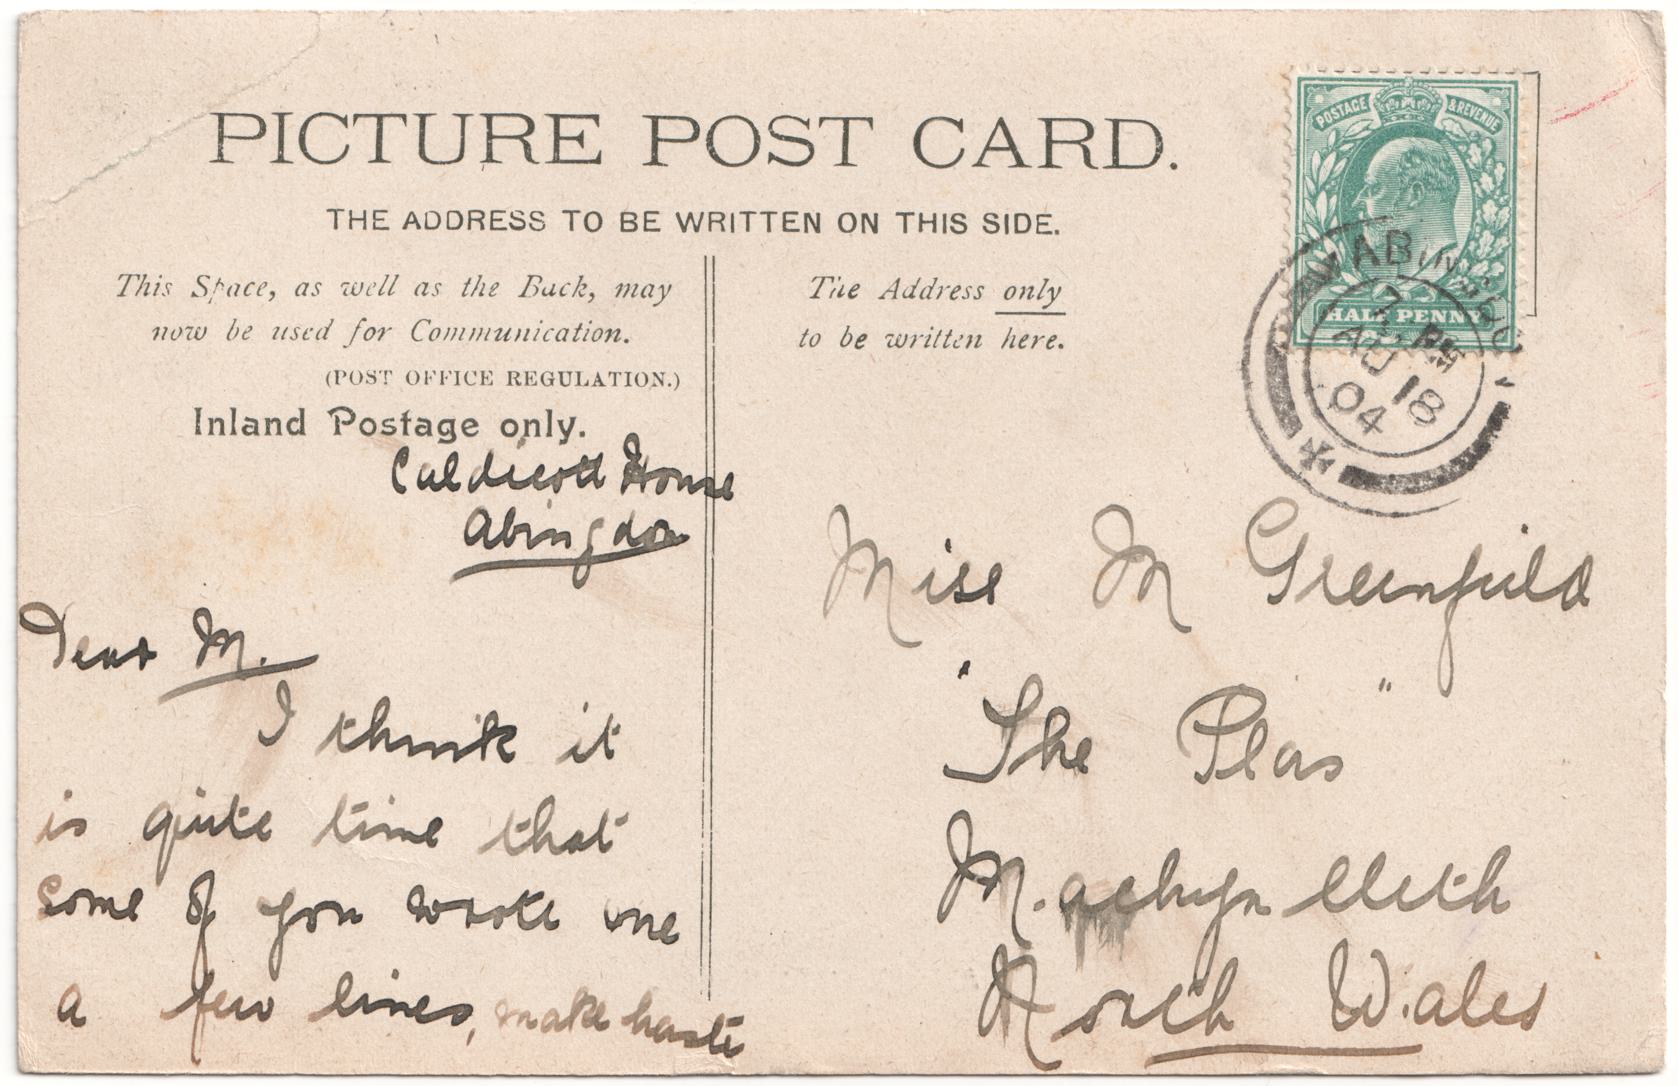 PICTURE POST CARD.
THE ADDRESS TO BE WRITTEN ON THIS SIDE.
This Space, as well as the Back, may
now be used for Communication.
(POST OFFICE REGULATION.)
Inland Postage only.
The Address only
to be written here.
POSTAGE & REVENUE
HALF PENNY
ABINGDON
7 PM
AU 18
04
Caldicott House
Abingdon
Dear M.
I think it
is quite time that
some of you wrote one
a few lines, make haste
Miss M Greenfield
"The Plas"
Machynlleth
North Wales